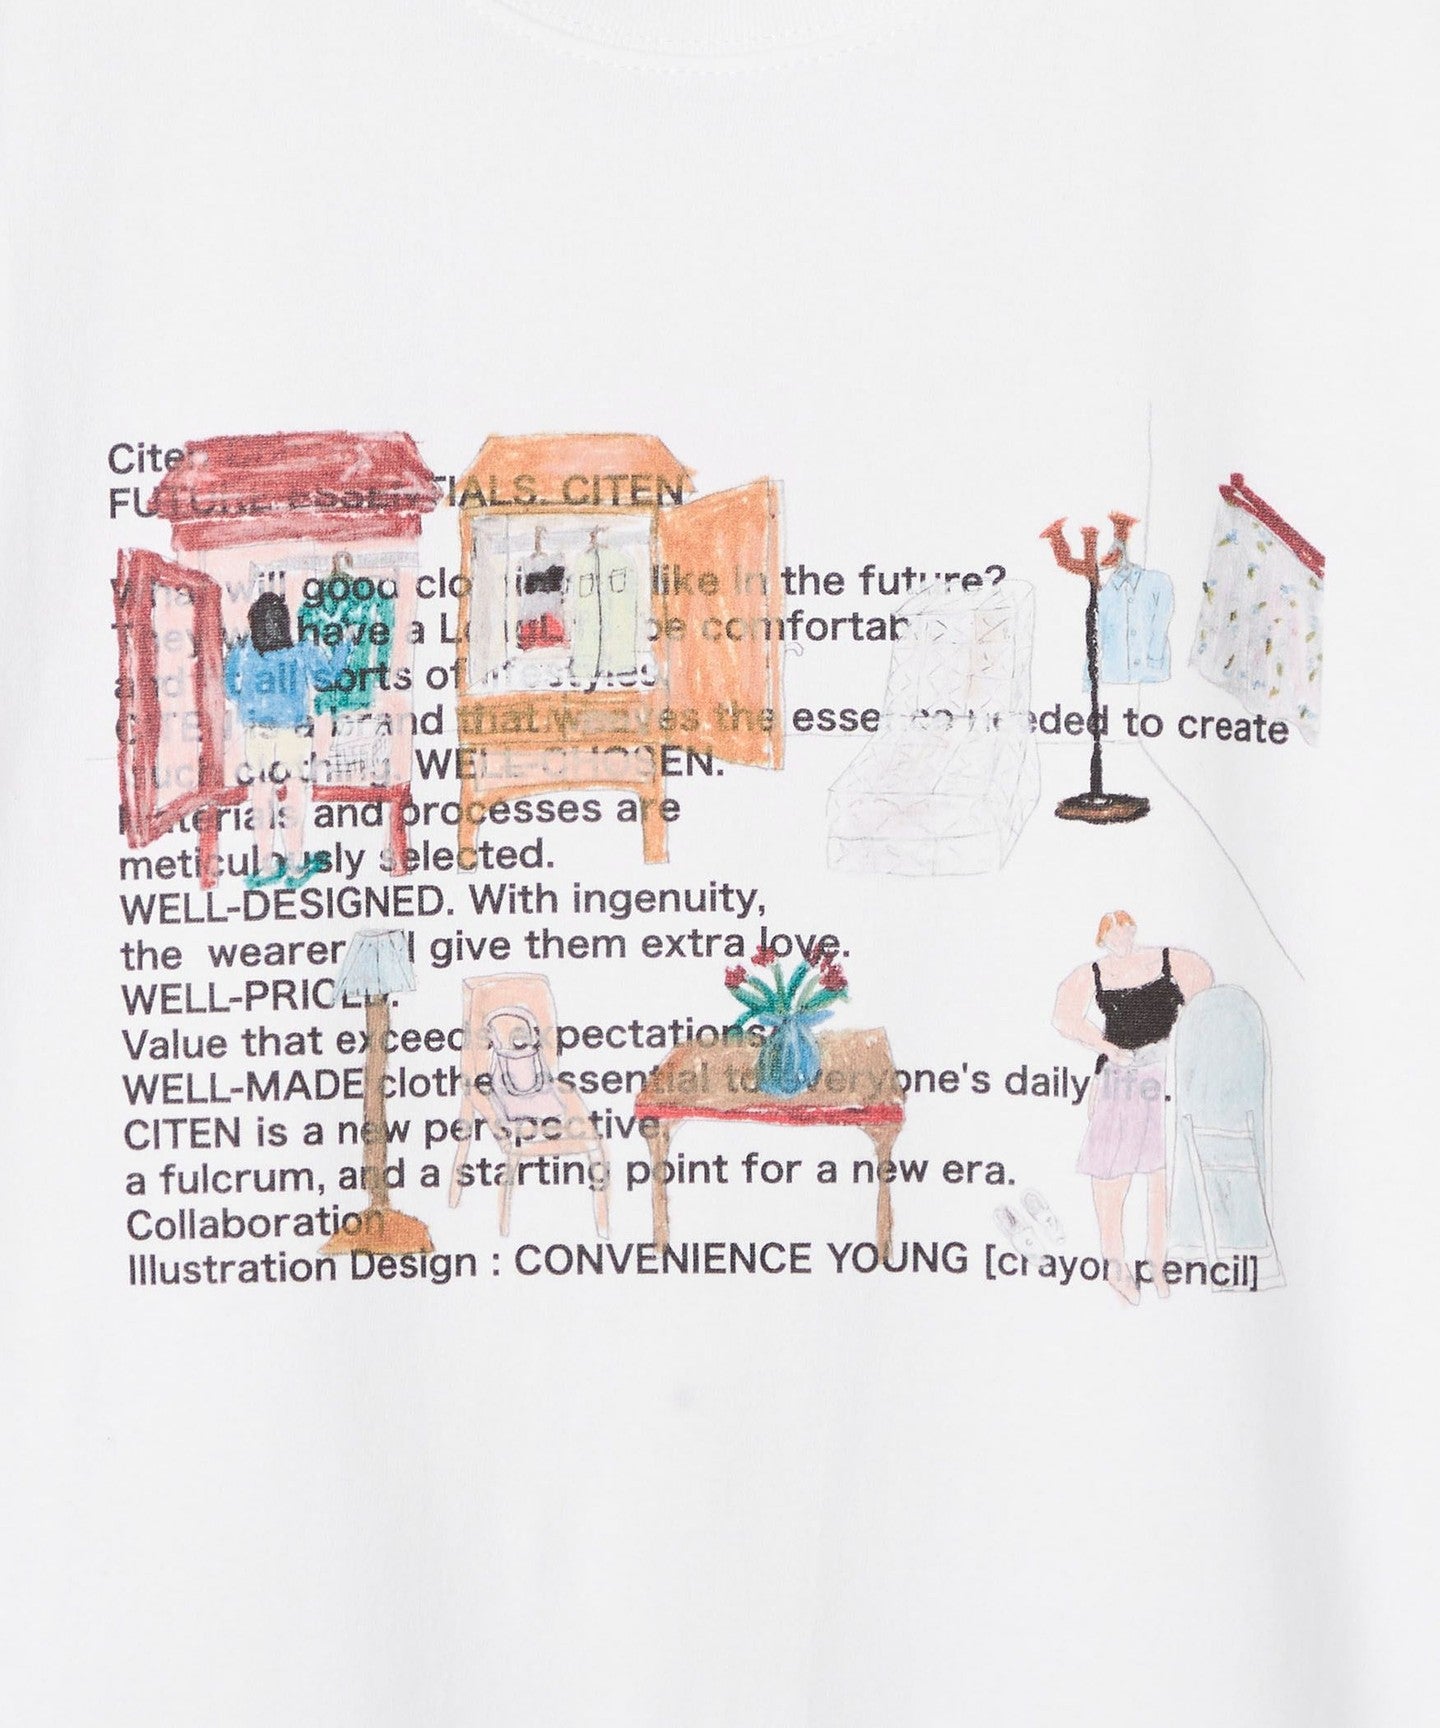 Citen
FUTURE ESSENTIALS. CITEN
What will good clothing be like in the future?
They will have a Long Life, be comfortable
and fit all sorts of lifestyles.
CITEN is a brand that weaves the essence needed to create
such clothing. WELL-CHOSEN.
Materials and processes are
meticulously selected.
WELL-DESIGNED. With ingenuity,
the wearer will give them extra love.
WELL-PRICED.
Value that exceeds expectations.
WELL-MADE clothes essential to everyone's daily life.
CITEN is a new perspective,
a fulcrum, and a starting point for a new era.
Collaboration
Illustration Design : CONVENIENCE YOUNG [crayon,pencil]